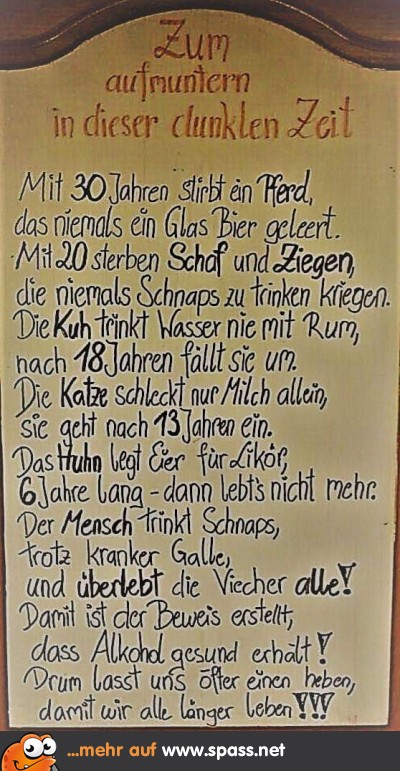 Zum
aufmuntern
in dieser dunklen Zeit
Mit 30 Jahren stirbt ein Pferd,
das niemals ein Glas Bier geleert.
Mit 20 sterben Schaf und Ziegen,
die niemals Schnaps zu trinken kriegen.
Die Kuh trinkt Wasser nie mit Rum,
nach 18 Jahren fällt sie um.
Die Katze schleckt nur Milch allein,
sie geht nach 13 Jahren ein.
Das Huhn legt Eier für Likör,
6 Jahre lang - dann lebt's nicht mehr.
Der Mensch trinkt Schnaps,
trotz kranker Galle,
und überlebt die Viecher alle!
Damit ist der Beweis erstellt,
dass Alkohol gesund erhält!
Drum lasst uns öfter einen heben,
damit wir alle länger leben!!!
...mehr auf www.spass.net